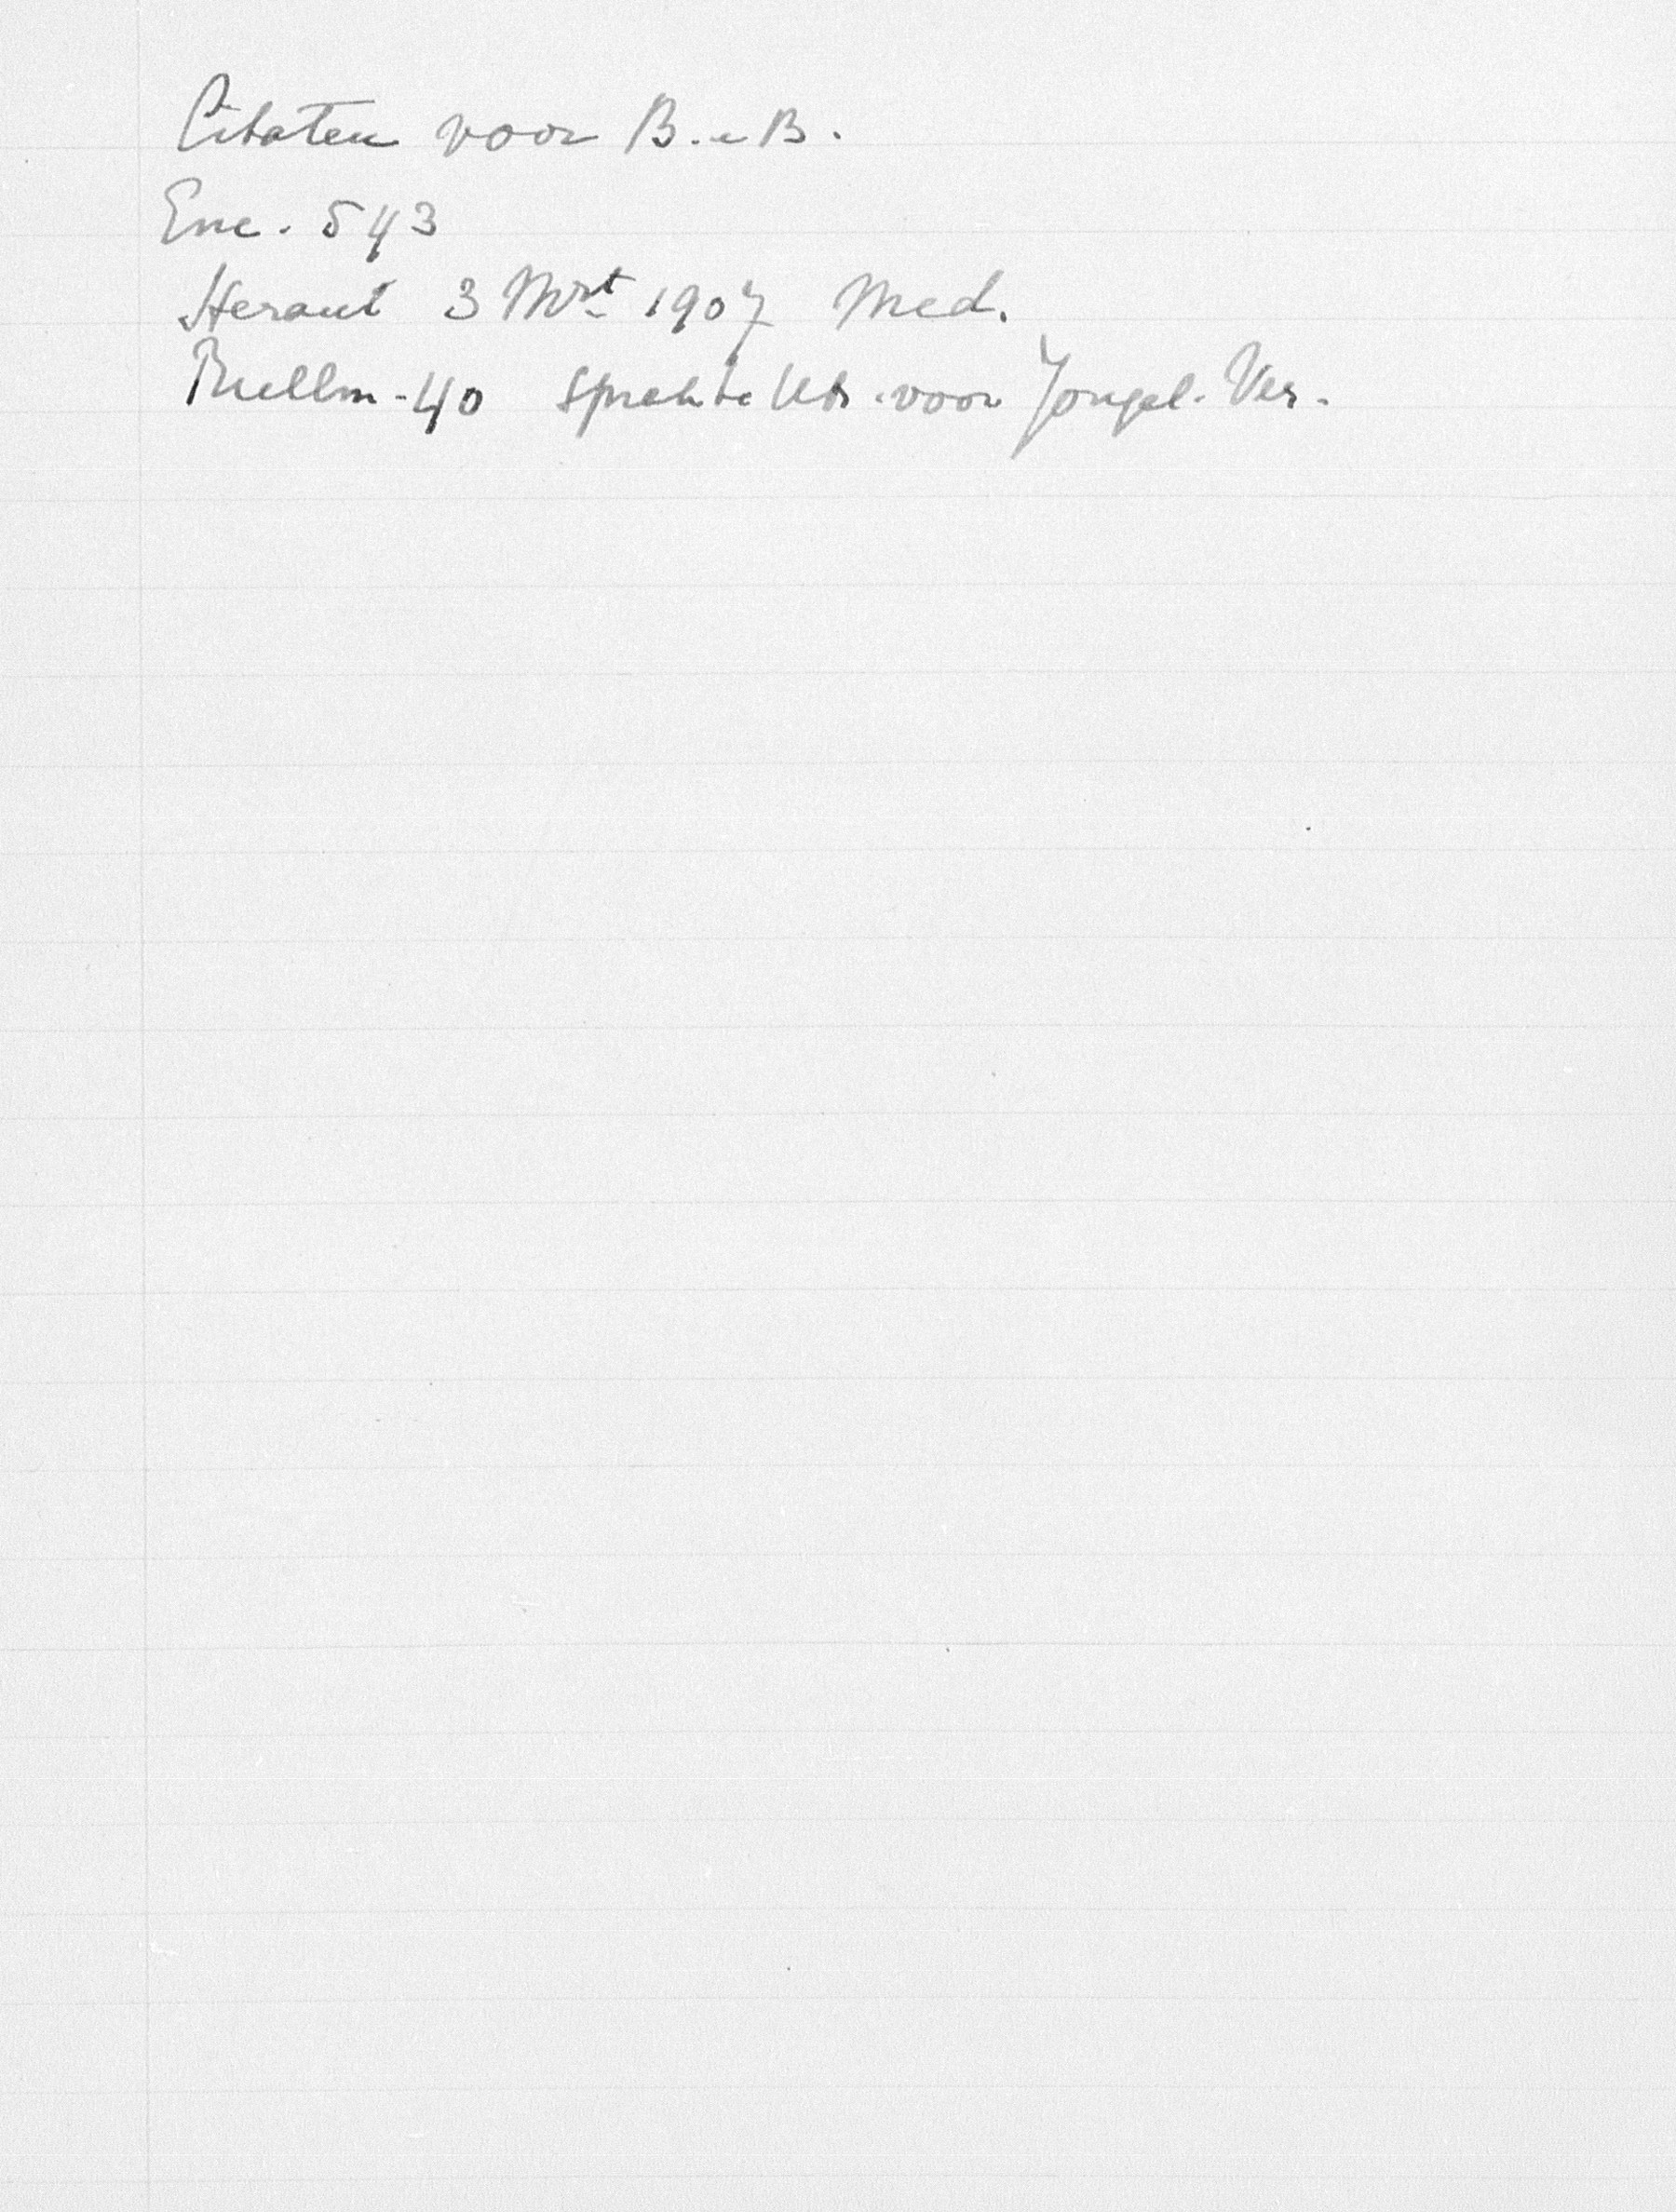 Citaten voor B. e B.
Enc. 543
Heraut 3 Mrt 1907 Med.
40 voor Jongel. Ver.